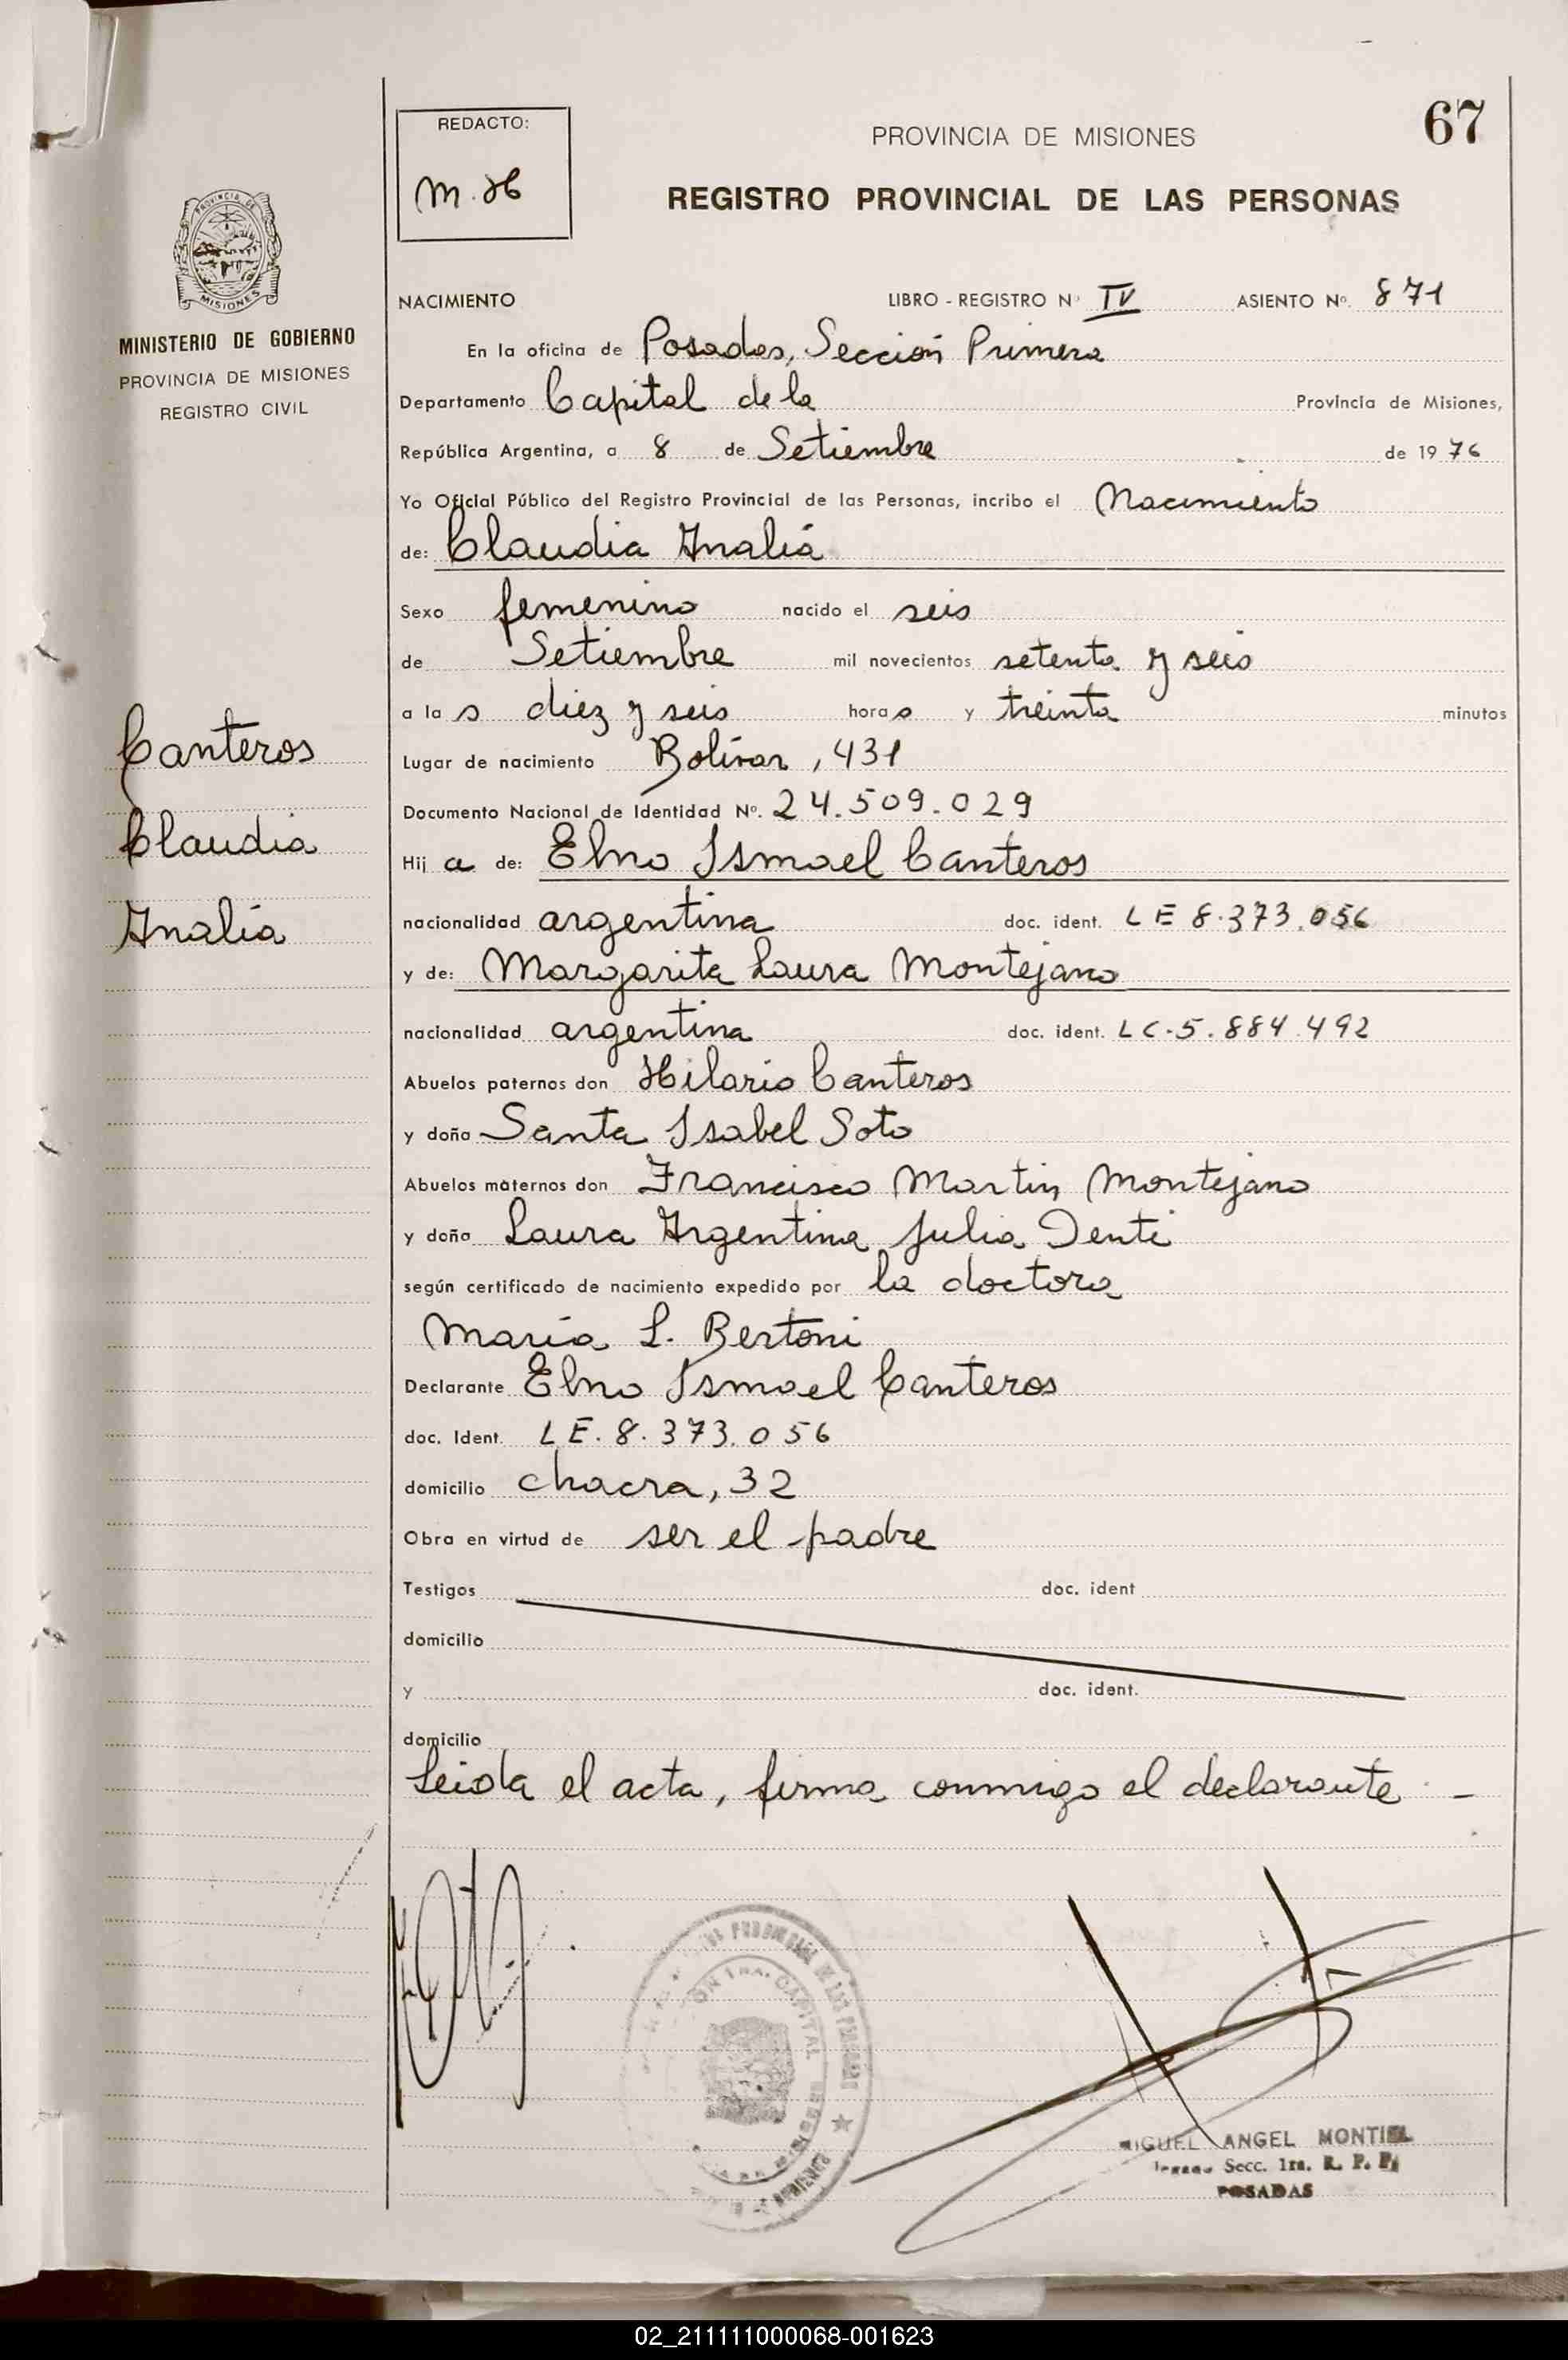 67
REDACTO:
M. H
PROVINCIA DE MISIONES
REGISTRO PROVINCIAL DE LAS PERSONAS
PROVINCIA DE
MISIONES
MINISTERIO DE GOBIERNO
PROVINCIA DE MISIONES
REGISTRO CIVIL
Canteros
Claudia
Analía
NACIMIENTO LIBRO - REGISTRO Nº IV ASIENTO Nº. 871
En la oficina de Posadas, Sección Primera
Departamento Capital de la Provincia de Misiones,
República Argentina, a 8 de Setiembre de 1976
Yo Oficial Público del Registro Provincial de las Personas, incribo el Nacimiento
de: Claudia Analía
Sexo femenino nacido el seis
de Setiembre mil novecientos setenta y seis
a las diez y seis horas y treinta minutos
Lugar de nacimiento Bolívar, 431
Documento Nacional de Identidad Nº. 24.509.029
Hija de: Elno Ismael Canteros
nacionalidad argentina doc. ident. LE 8.373.056
y de: Margarita Laura Montejano
nacionalidad argentina doc. ident. LC-5.884.492
Abuelos paternos don Hilario Canteros
y doña Santa Isabel Soto
Abuelos maternos don Francisco Martin Montejano
y doña Laura Argentina Julia Denti
según certificado de nacimiento expedido por la doctora
María L. Bertoni
Declarante Elno Ismael Canteros
doc. Ident. LE. 8.373.056
domicilio chacra, 32
Obra en virtud de ser el padre
Testigos doc. ident
domicilio
y doc. ident.
domicilio
Leida el acta, firma conmigo el declarante -
CAPITAL
MIGUEL ANGEL MONTIEL
Secc. 1ra. R. P. P.
POSADAS
02_211111000068-001623